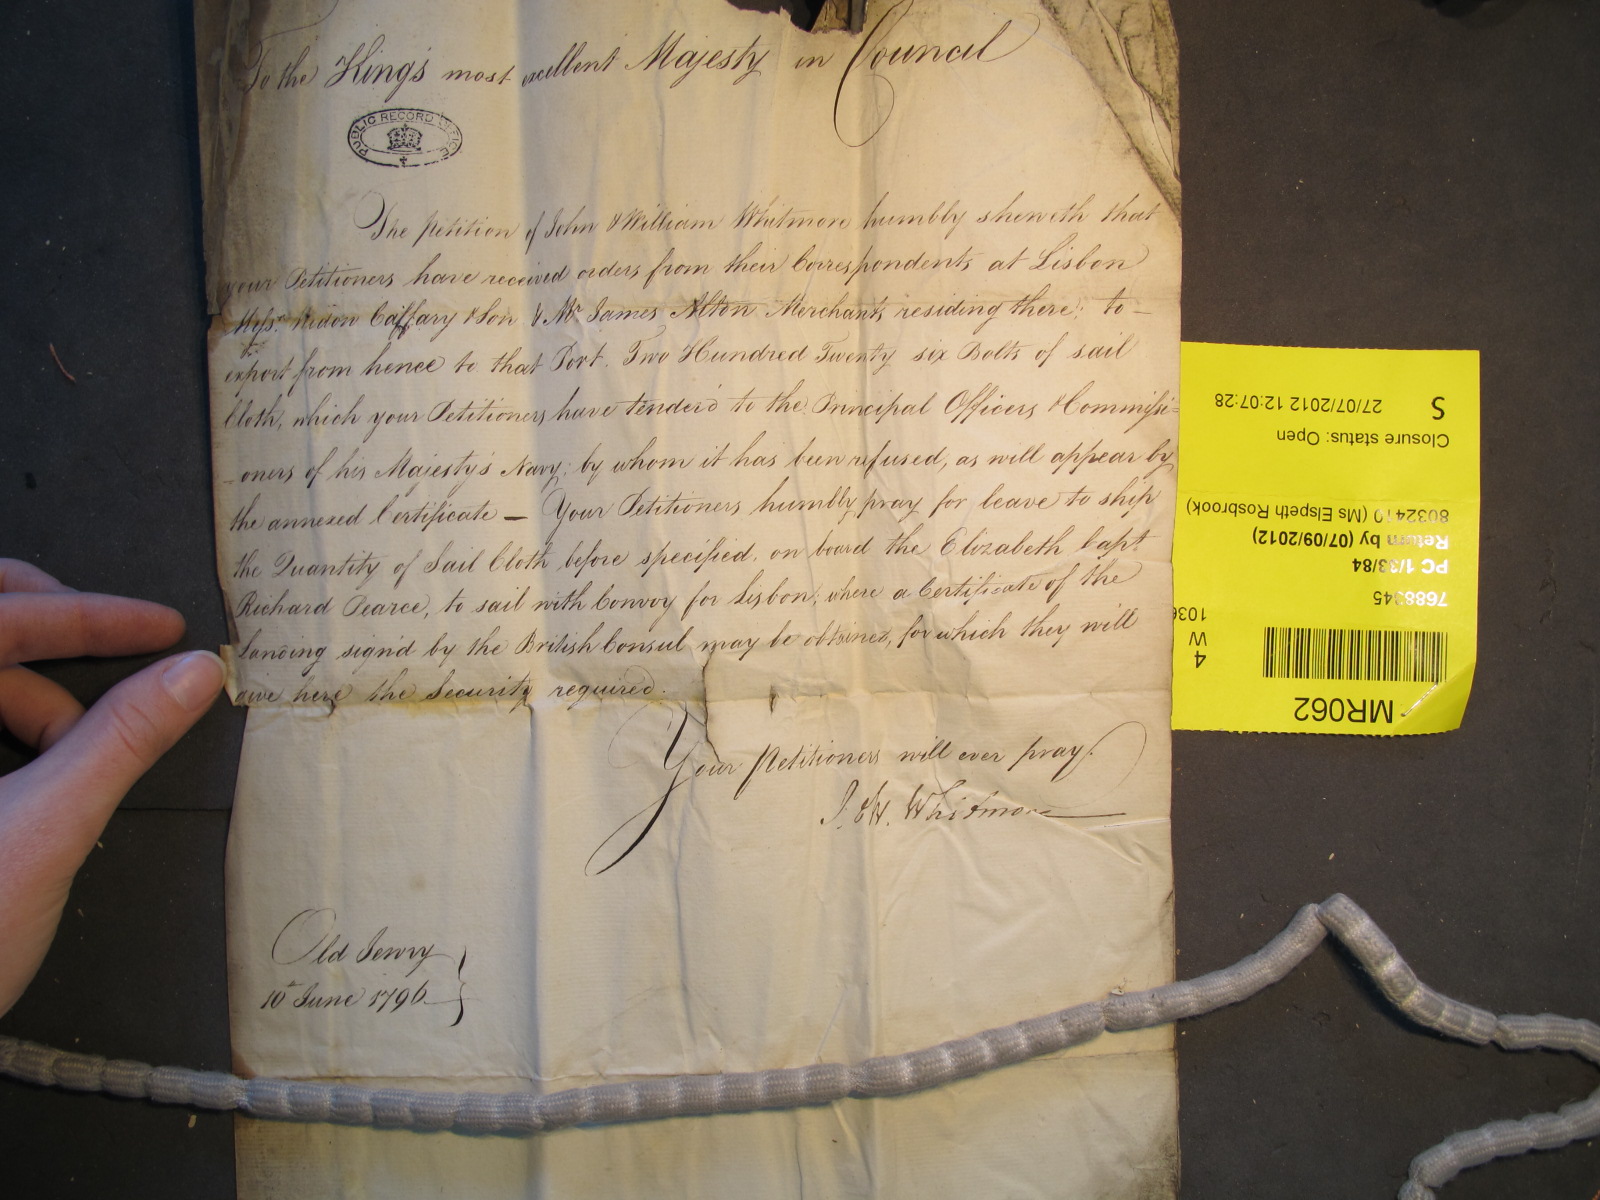 To the King's most excellent Majesty in Council
PUBLIC RECORD OFFICE
The Petition of John & William Whitmore humbly sheweth that
your Petitioners have received orders from their Correspondents at Lisbon
Messrs. Caffary & Son & Mr James Alton Merchants residing there; to -
export from hence to that Port. Two Hundred Twenty six Bolts of sail
Cloth, which your Petitioners have tender'd to the Principal Officers & Commissi=
-oners of his Majesty's Navy; by whom it has been refused, as will appear by
the annexed Certificate — Your Petitioners humbly pray for leave to ship
the Quantity of Sail Cloth before specified. on board the Elizabeth Capt.
Richard Pearce, to sail with Convoy for Lisbon; where a Certificate of the
Landing sign'd by the British Consul may be obtained, for which they will
give here the Security required.
Your Petitioners will ever pray.
J. & W. Whitmore
Old Jewry
10th June 1796
MR062
4
W
1036
7688345
PC 1/33/84
Return by (07/09/2012)
8032410 (Ms Elspeth Rosbrook)
Closure status: Open
27/07/2012 12:07:28
S